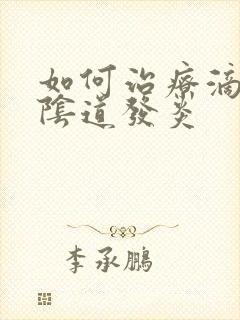 如何治療滴
陰道發炎
李承鵬